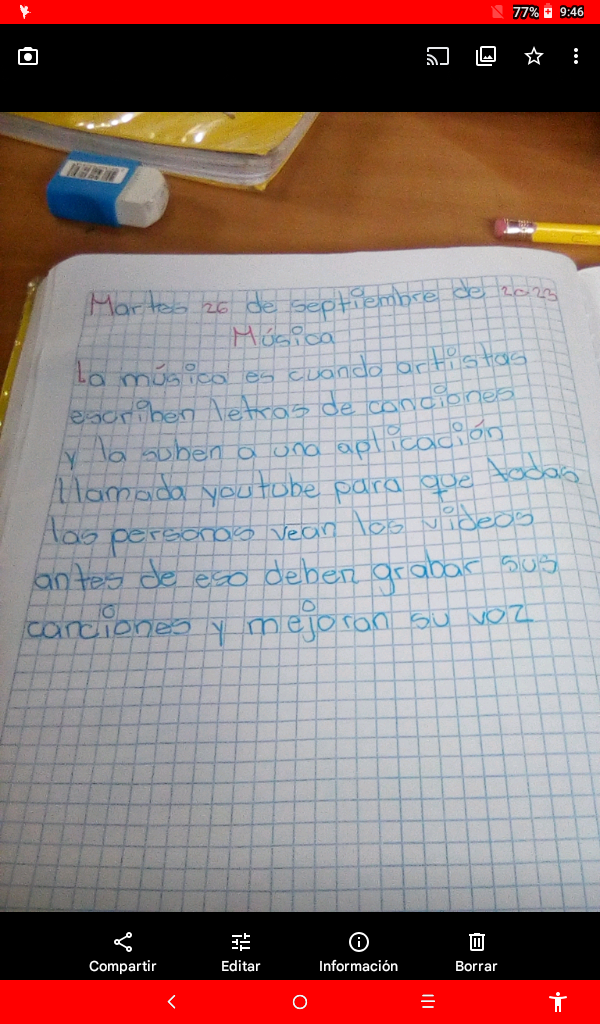 77% 9:46
Martes 26 de septiembre de 2023
Música
La música es cuando artistas
escriben letras de canciones
y la suben a una aplicación
llamada youtube para que todas
las personas vean los videos
antes de eso deben grabar sus
canciones y mejoran su voz
Compartir Editar Información Borrar